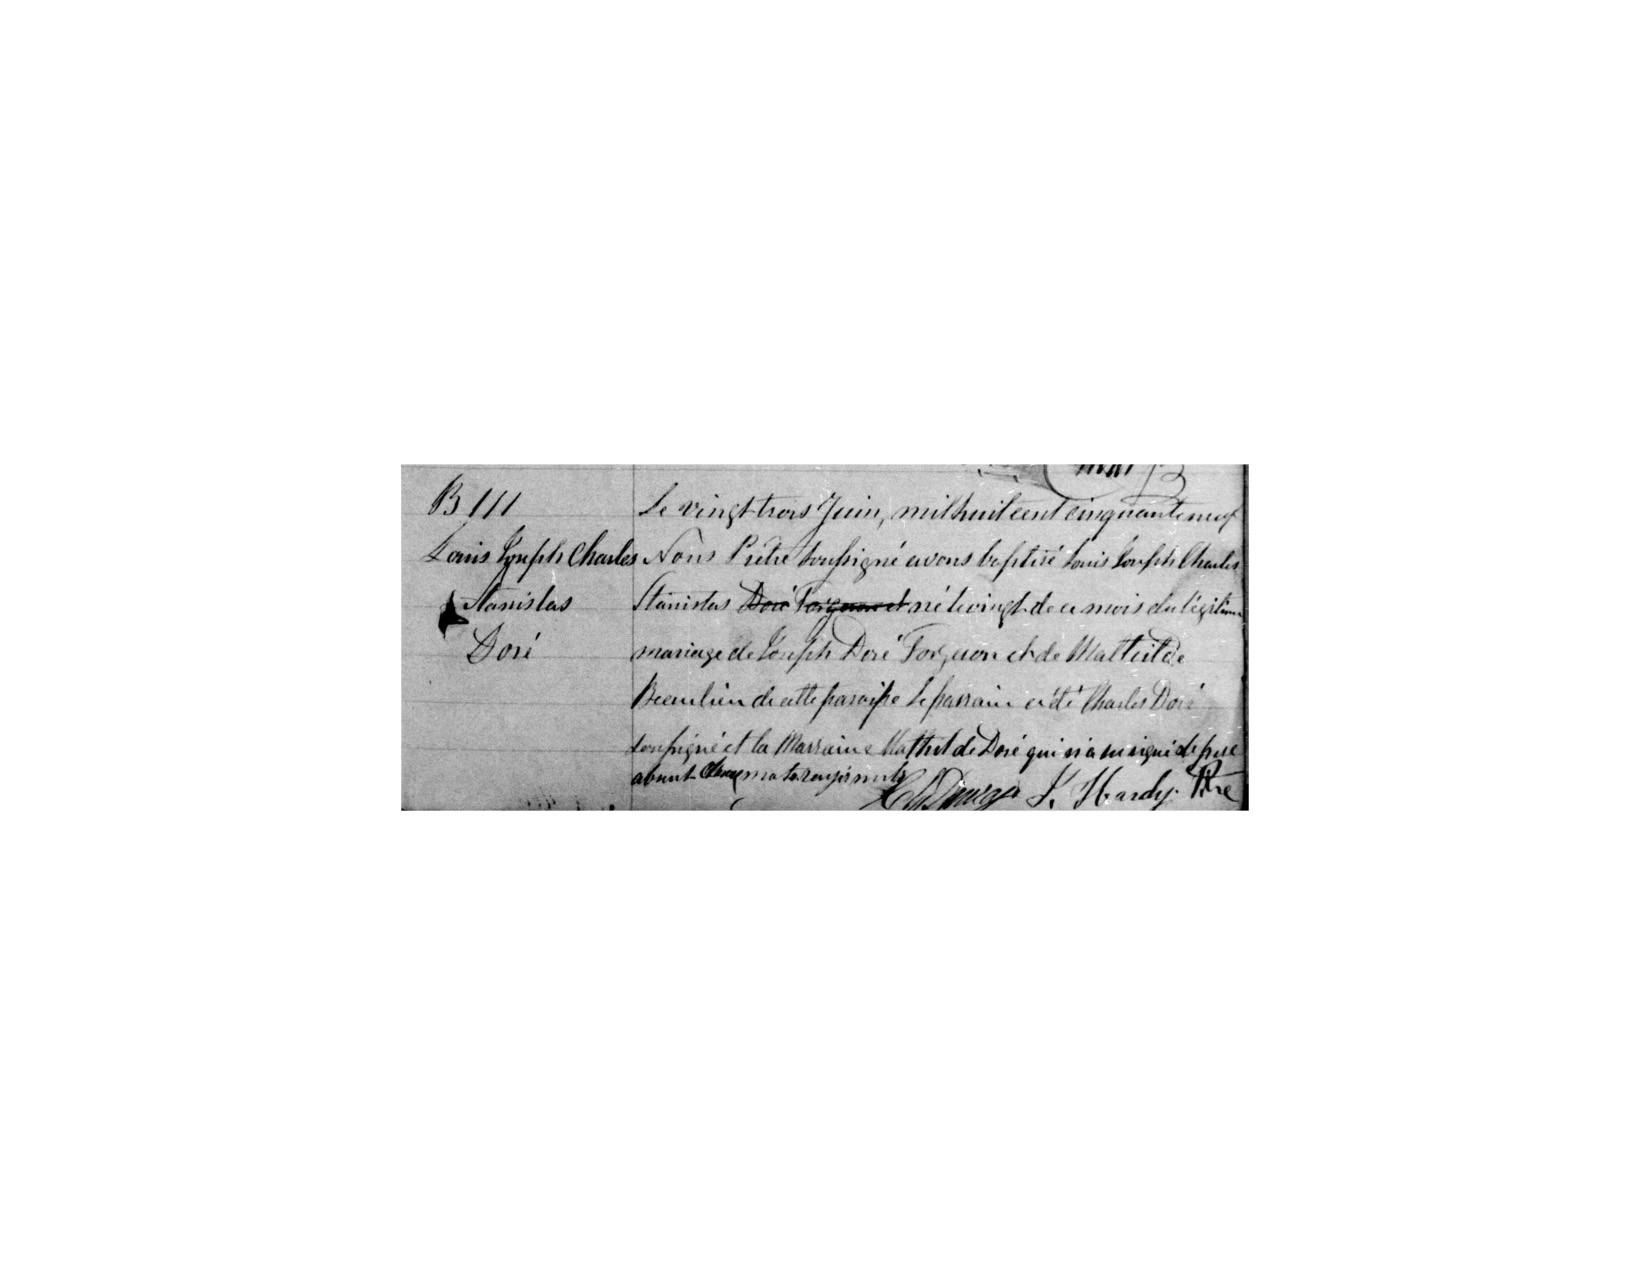 B 111
Louis Joseph Charles
Stanislas
Doré
Le vingt-trois Juin, mil huit cent cinquante neuf
Nous Prêtre soussigné avons baptisé Louis Joseph Charles
Stanislas Doré Forguon et né le vingt de ce mois du légitime
mariage de Joseph Doré Forguon et de Mathilde
Beaulieu de cette paroisse Le parrain a été Charles Doré
soussigné et la Marraine Mathilde Doré qui n'a su signé de pere
absent
L. Hardy Ptre